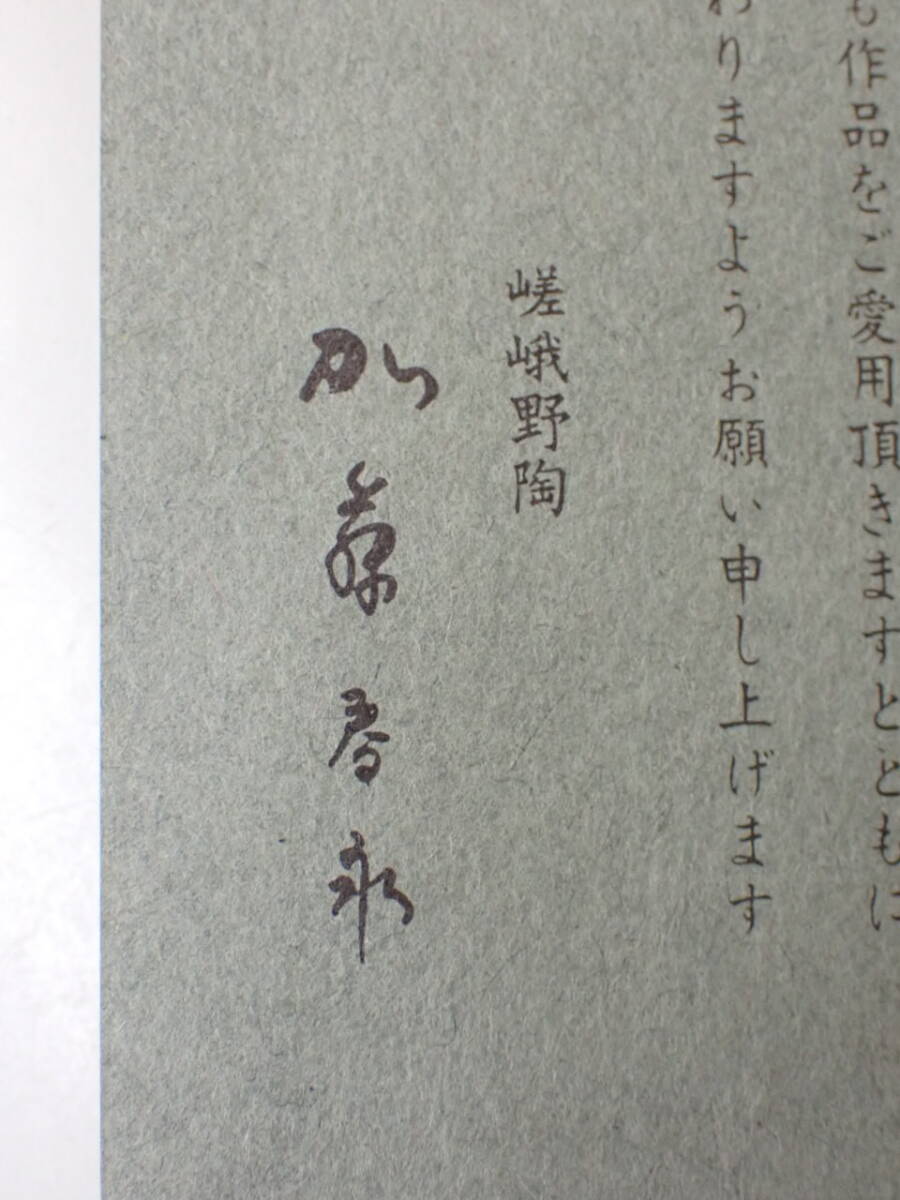 も作品をご愛用頂きますとともに
わりますようお願い申し上げます
嵯峨野陶
加藤春永